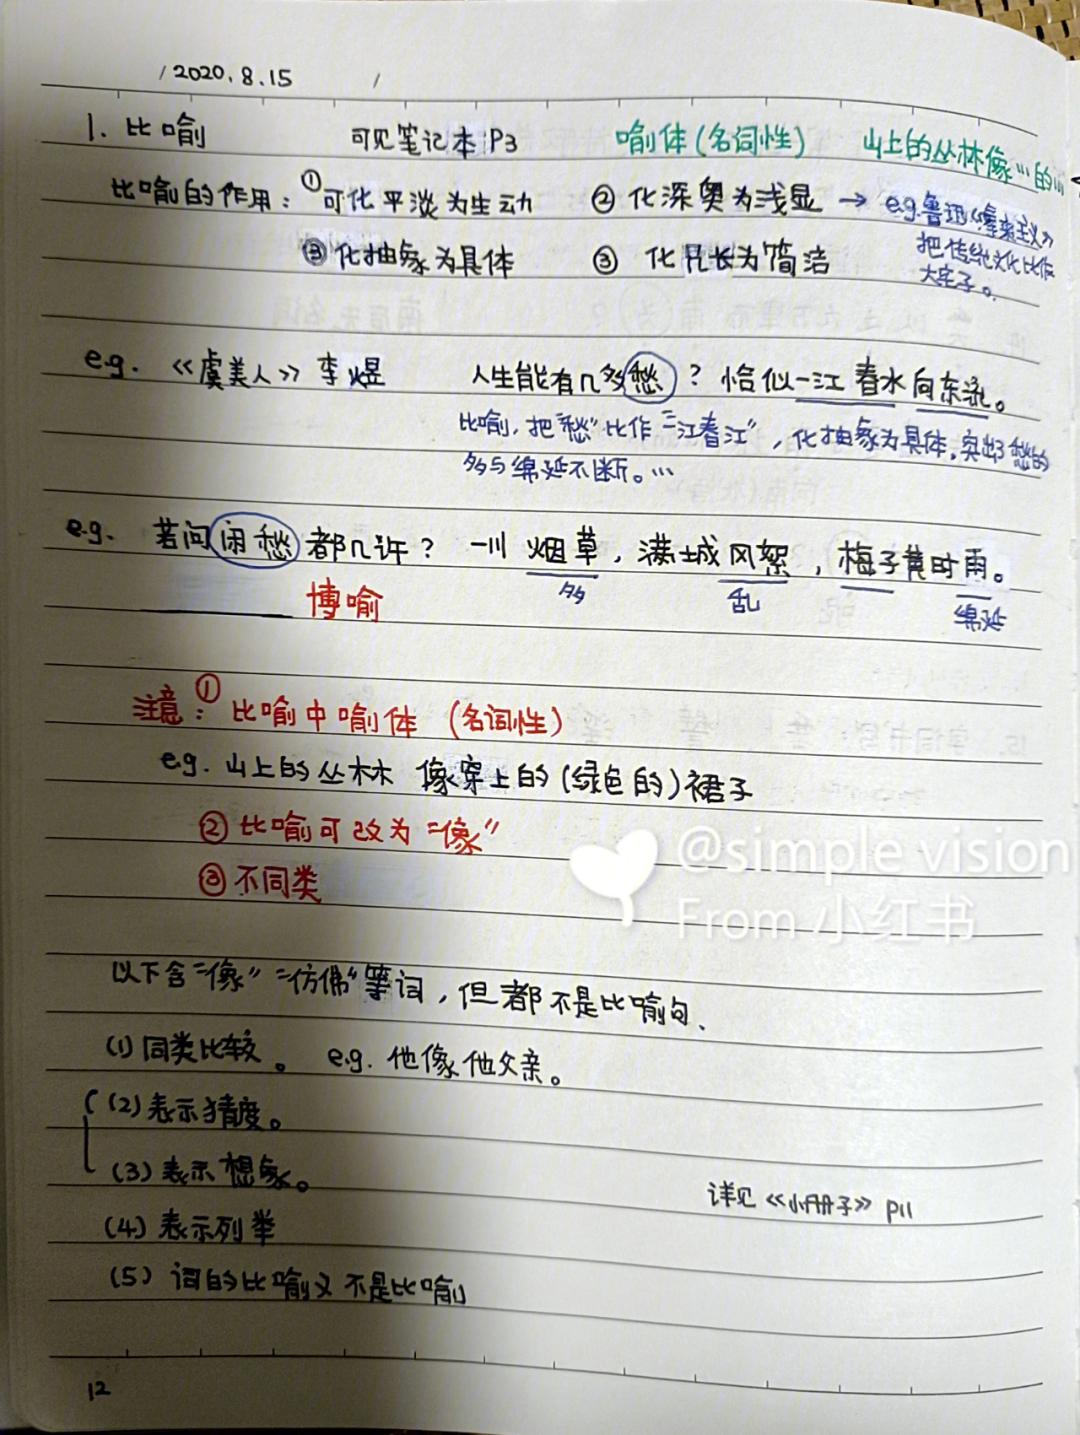 2020.8.15
1. 比喻 可见笔记本P3 喻体(名词性) 山上的丛林像…的…
比喻的作用：①可化平淡为生动 ②化深奥为浅显 → e.g.鲁迅《拿来主义》
把传统文化比作
大宅子。
③化抽象为具体 ③ 化冗长为简洁
e.g. 《虞美人》李煜 人生能有几多愁？恰似一江春水向东流。
比喻，把“愁”比作“一江春江”，化抽象为具体，突出了愁的
多与绵延不断。…
e.g. 若问闲愁都几许？一川烟草，满城风絮，梅子黄时雨。
博喻 多 乱 绵延
注意：①比喻中喻体 (名词性)
e.g. 山上的丛林 像穿上的(绿色的)裙子
②比喻可改为“像”
③不同类
以下含“像”“仿佛”等词，但都不是比喻句.
(1)同类比较。 e.g. 他像他父亲。
(2)表示猜度。
(3)表示想象。
详见《小册子》P11
(4)表示列举
(5) 词的比喻义不是比喻
12
@simple vision
From 小红书